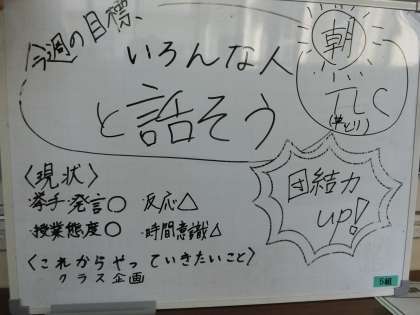 今週の目標、
いろんな人
と話そう
朝
TLC
団結力
up!
〈現状〉
・挙手・発言○ ・反応△
・授業態度○ ・時間意識△
〈これからやっていきたいこと〉
クラス企画
5組